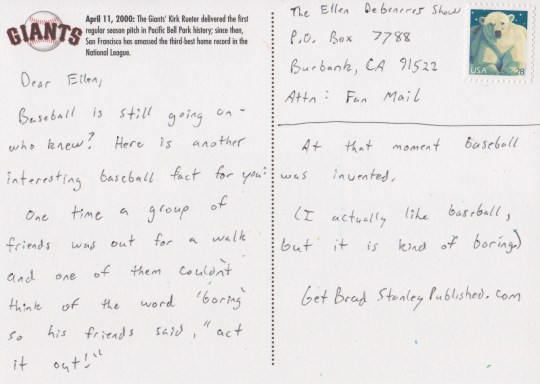 GIANTS
April 11, 2000: The Giants' Kirk Rueter delivered the first
regular season pitch in Pacific Bell Park history; since then,
San Francisco has amassed the third-best home record in the
National League.
Dear Ellen,
Baseball is still going on -
who knew? Here is another
interesting baseball fact for you:
One time a group of
friends was out for a walk
and one of them couldn't
think of the word "boring"
so his friends said, "act
it out!"
The Ellen DeGeneres Show
P.O. Box 7788
Burbank, CA 91522
Attn: Fan Mail
USA 28
At that moment baseball
was invented.
(I actually like baseball,
but it is kind of boring.)
GetBradStanleyPublished.com